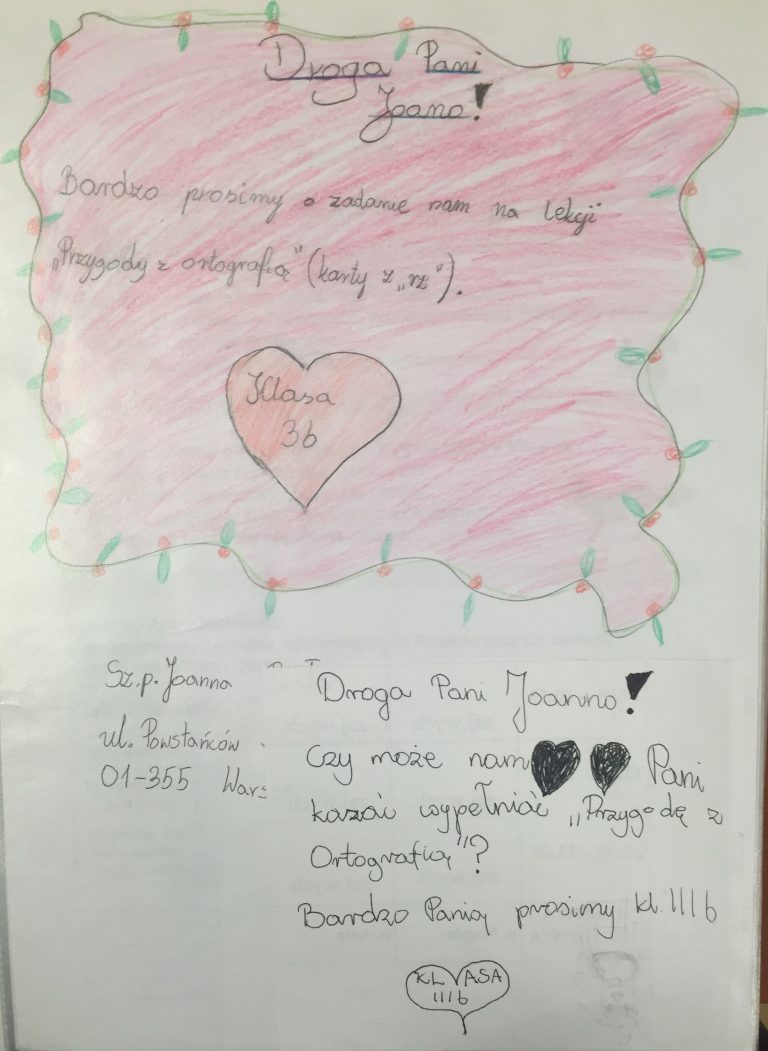 Droga Pani
Joano!
Bardzo prosimy o zadanie nam na lekcji
„Przygody z ortografią" (karty z „rz").
Klasa
3b
Sz.p. Joanna
ul. Powstańców
01-355 Wars
Droga Pani Joanno!
Czy może nam Pani
kazać wypełniać „Przygodę z
Ortografią"?
Bardzo Panią prosimy kl. III b
KLASA
III b